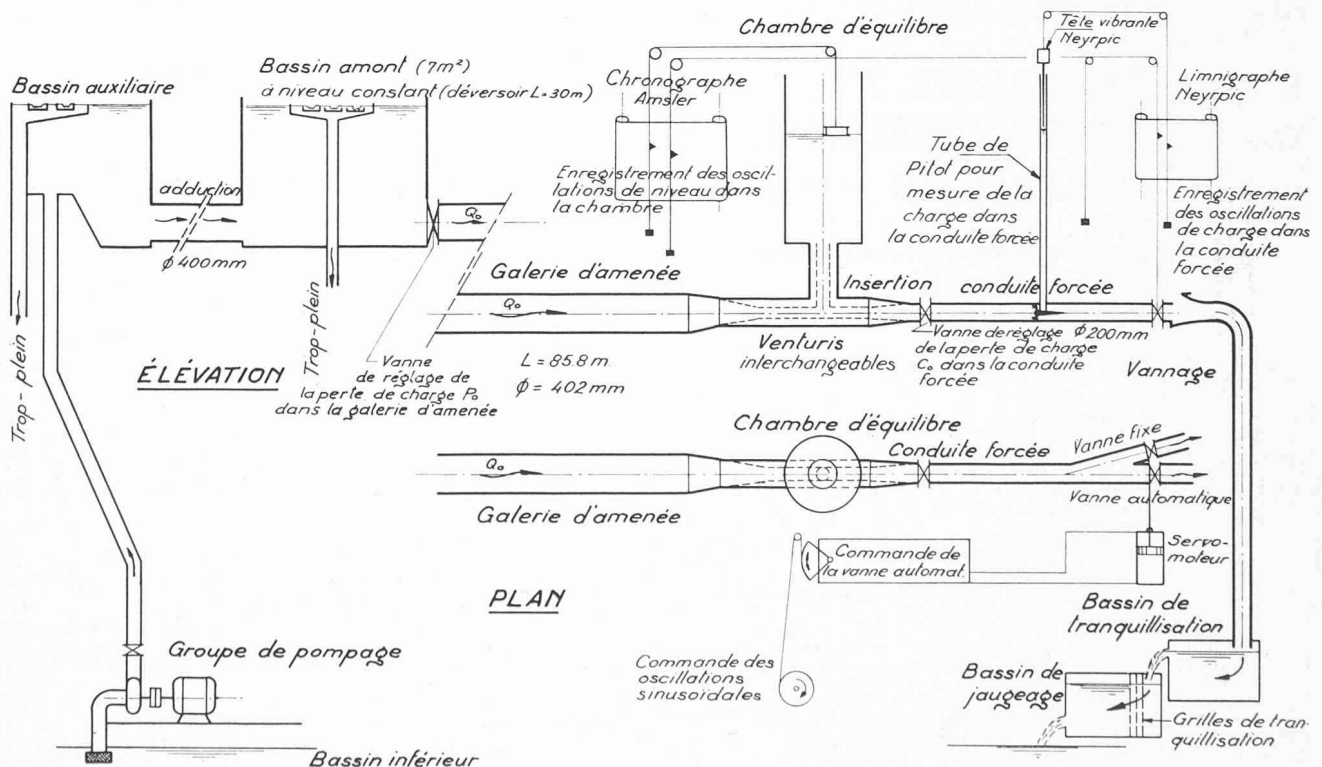 Bassin auxiliaire
Bassin amont (7m²)
à niveau constant (déversoir L=30m)
Chambre d'équilibre
Tête vibrante
Neyrpic
Chronographe
Amsler
Limnigraphe
Neyrpic
Enregistrement des oscil-
lations de niveau dans
la chambre
Tube de
Pitot pour
mesure de la
charge dans
la conduite forcée
Enregistrement
des oscillations
de charge dans
la conduite
forcée
adduction
φ 400mm
Q₀
Trop-plein
Trop-plein
Galerie d'amenée
Q₀
Insertion
conduite forcée
Venturis
interchangeables
Vanne de réglage
de la perte de charge
C₀ dans la conduite
forcée
φ 200mm
Vannage
ÉLÉVATION
Vanne
de réglage de
la perte de charge P₀
dans la galerie d'amenée
L = 85.8 m.
φ = 402 mm
Chambre d'équilibre
Q₀
Conduite forcée
Vanne fixe
Galerie d'amenée
Vanne automatique
Servo-
moteur
Commande de
la vanne automat.
PLAN
Commande des
oscillations
sinusoïdales
Bassin de
tranquillisation
Bassin de
jaugeage
Grilles de tran-
quillisation
Groupe de pompage
Bassin inférieur